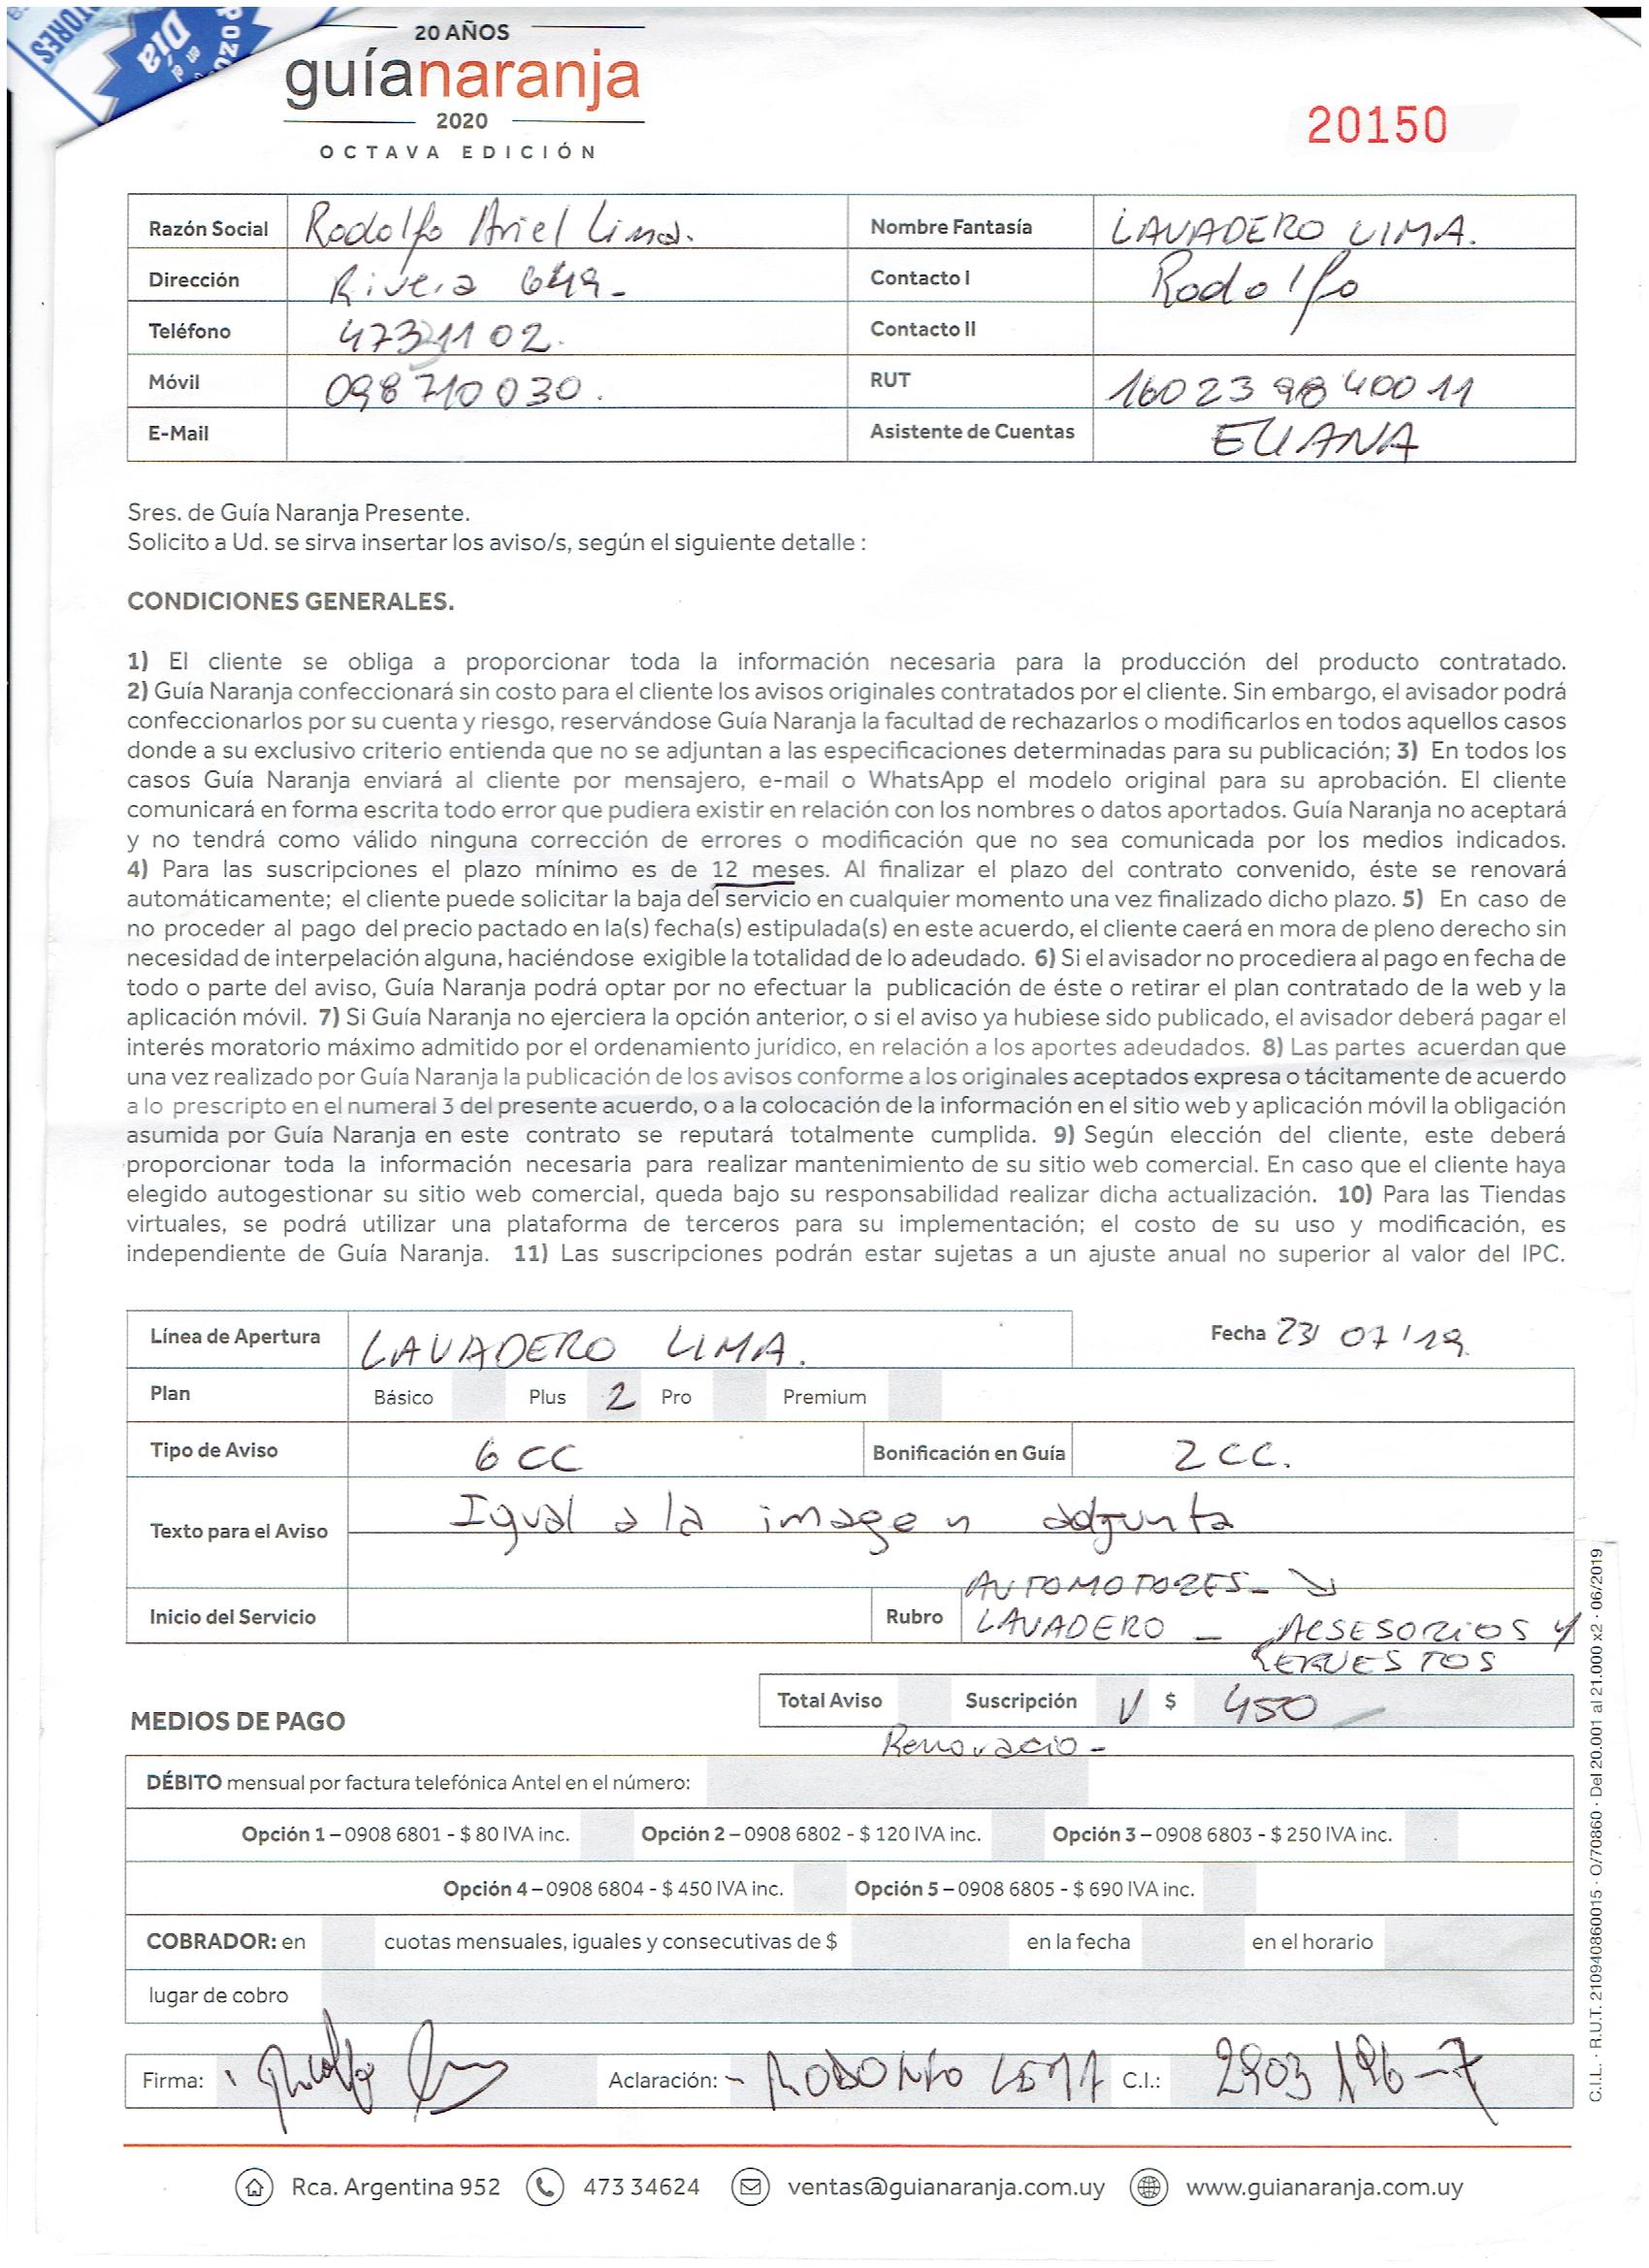 TORES
en el
Día
2020
20 AÑOS
guíanaranja
2020
OCTAVA EDICIÓN
20150
Razón Social Rodolfo Ariel Lima. Nombre Fantasía LAVADERO LIMA.
Dirección Rivera 649- Contacto I Rodolfo
Teléfono 47321102. Contacto II
Móvil 098710030. RUT 160239840011
E-Mail Asistente de Cuentas ELIANA
Sres. de Guía Naranja Presente.
Solicito a Ud. se sirva insertar los aviso/s, según el siguiente detalle :
CONDICIONES GENERALES.
1) El cliente se obliga a proporcionar toda la información necesaria para la producción del producto contratado.
2) Guía Naranja confeccionará sin costo para el cliente los avisos originales contratados por el cliente. Sin embargo, el avisador podrá
confeccionarlos por su cuenta y riesgo, reservándose Guía Naranja la facultad de rechazarlos o modificarlos en todos aquellos casos
donde a su exclusivo criterio entienda que no se adjuntan a las especificaciones determinadas para su publicación; 3) En todos los
casos Guía Naranja enviará al cliente por mensajero, e-mail o WhatsApp el modelo original para su aprobación. El cliente
comunicará en forma escrita todo error que pudiera existir en relación con los nombres o datos aportados. Guía Naranja no aceptará
y no tendrá como válido ninguna corrección de errores o modificación que no sea comunicada por los medios indicados.
4) Para las suscripciones el plazo mínimo es de 12 meses. Al finalizar el plazo del contrato convenido, éste se renovará
automáticamente; el cliente puede solicitar la baja del servicio en cualquier momento una vez finalizado dicho plazo. 5) En caso de
no proceder al pago del precio pactado en la(s) fecha(s) estipulada(s) en este acuerdo, el cliente caerá en mora de pleno derecho sin
necesidad de interpelación alguna, haciéndose exigible la totalidad de lo adeudado. 6) Si el avisador no procediera al pago en fecha de
todo o parte del aviso, Guía Naranja podrá optar por no efectuar la publicación de éste o retirar el plan contratado de la web y la
aplicación móvil. 7) Si Guía Naranja no ejerciera la opción anterior, o si el aviso ya hubiese sido publicado, el avisador deberá pagar el
interés moratorio máximo admitido por el ordenamiento jurídico, en relación a los aportes adeudados. 8) Las partes acuerdan que
una vez realizado por Guía Naranja la publicación de los avisos conforme a los originales aceptados expresa o tácitamente de acuerdo
a lo prescripto en el numeral 3 del presente acuerdo, o a la colocación de la información en el sitio web y aplicación móvil la obligación
asumida por Guía Naranja en este contrato se reputará totalmente cumplida. 9) Según elección del cliente, este deberá
proporcionar toda la información necesaria para realizar mantenimiento de su sitio web comercial. En caso que el cliente haya
elegido autogestionar su sitio web comercial, queda bajo su responsabilidad realizar dicha actualización. 10) Para las Tiendas
virtuales, se podrá utilizar una plataforma de terceros para su implementación; el costo de su uso y modificación, es
independiente de Guía Naranja. 11) Las suscripciones podrán estar sujetas a un ajuste anual no superior al valor del IPC.
Línea de Apertura LAVADERO LIMA. Fecha 23/ 07/19
Plan Básico Plus 2 Pro Premium
Tipo de Aviso 6 CC Bonificación en Guía 2 CC.
Texto para el Aviso Igual a la imagen adjunta
AUTOMOTORES-
Inicio del Servicio Rubro LAVADERO - ACSESORIOS Y
REPUESTOS
Total Aviso Suscripción V $ 450
MEDIOS DE PAGO
Renovacio -
DÉBITO mensual por factura telefónica Antel en el número:
Opción 1 – 0908 6801 - $ 80 IVA inc. Opción 2 – 0908 6802 - $ 120 IVA inc. Opción 3 – 0908 6803 - $ 250 IVA inc.
Opción 4 – 0908 6804 - $ 450 IVA inc. Opción 5 – 0908 6805 - $ 690 IVA inc.
COBRADOR: en cuotas mensuales, iguales y consecutivas de $ en la fecha en el horario
lugar de cobro
Firma: Aclaración: - RODOLFO LIMA C.I.: 2903 196-7
Rca. Argentina 952 473 34624 ventas@guianaranja.com.uy www.guianaranja.com.uy
C.I.L. · R.U.T. 210940860015 · O/70860 · Del 20.001 al 21.000 x2 · 06/2019